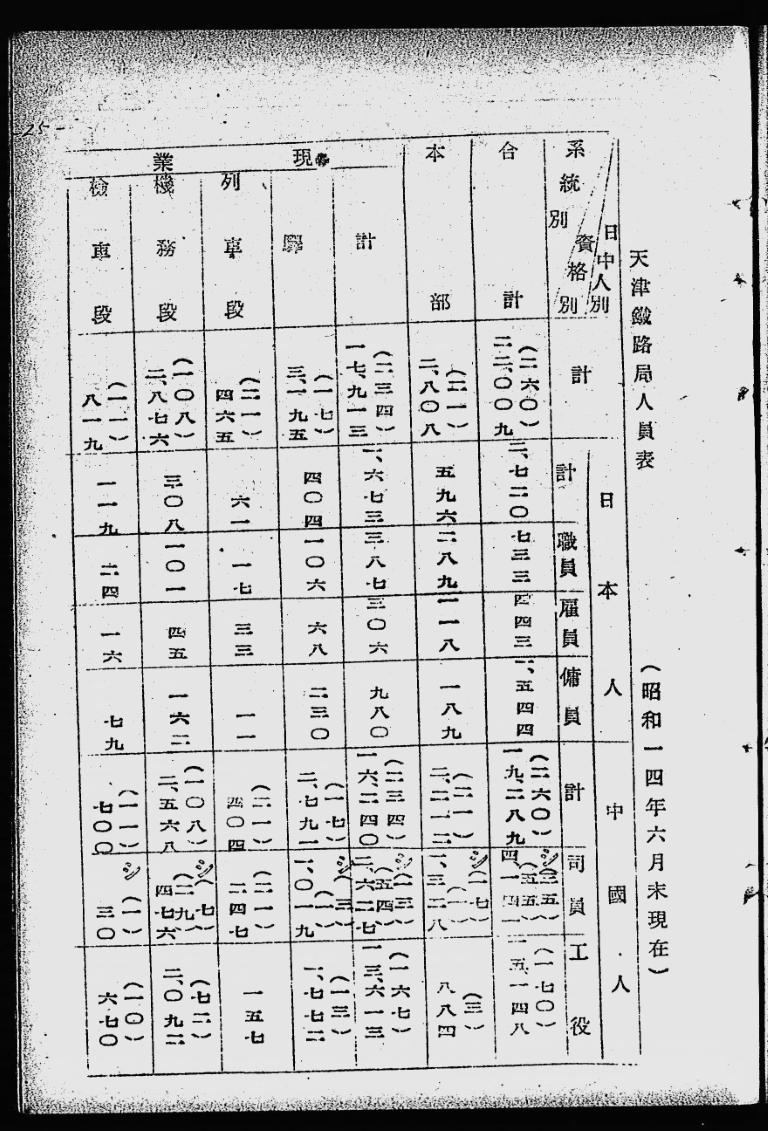 天津鐵路局人員表　（昭和一四年六月末現在）
日中人別
資格別
系統別
計　日本人　中國人
計　職員　雇員　傭員　計　司員　工役
合計　（二六〇）二二、〇〇九　二、七二〇　七三三　四四三　一、五四四　（二六〇）一九、二八九　（三五）（五五）四、一四一　（一七〇）一五、一四八
本部　（二一）二、八〇八　五九六　二八九　一一八　一八九　（二一）二、二一二　（一七）（一）一、三二八　（三）八八四
現業
計　（二三四）一七、九一三　一、六七三　三八七　三〇六　九八〇　（二三四）一六、二四〇　（一三）（五四）二、六二七　（一六七）一三、六一三
驛　（一七）三、一九五　四〇四　一〇六　六八　二三〇　（一七）二、七九一　（三）（一）一、〇一九　（一三）一、七七二
列車段　（二一）四六五　六一　一七　三三　一一　（二一）四〇四　（二一）二四七　一五七
機務段　（一〇八）二、八七六　三〇八　一〇一　四五　一六二　（一〇八）二、五六八　（七）（二九）四七六　（七二）二、〇九二
檢車段　（一一）八一九　一一九　二四　一六　七九　（一一）七〇〇　（一）三〇　（一〇）六七〇
25-